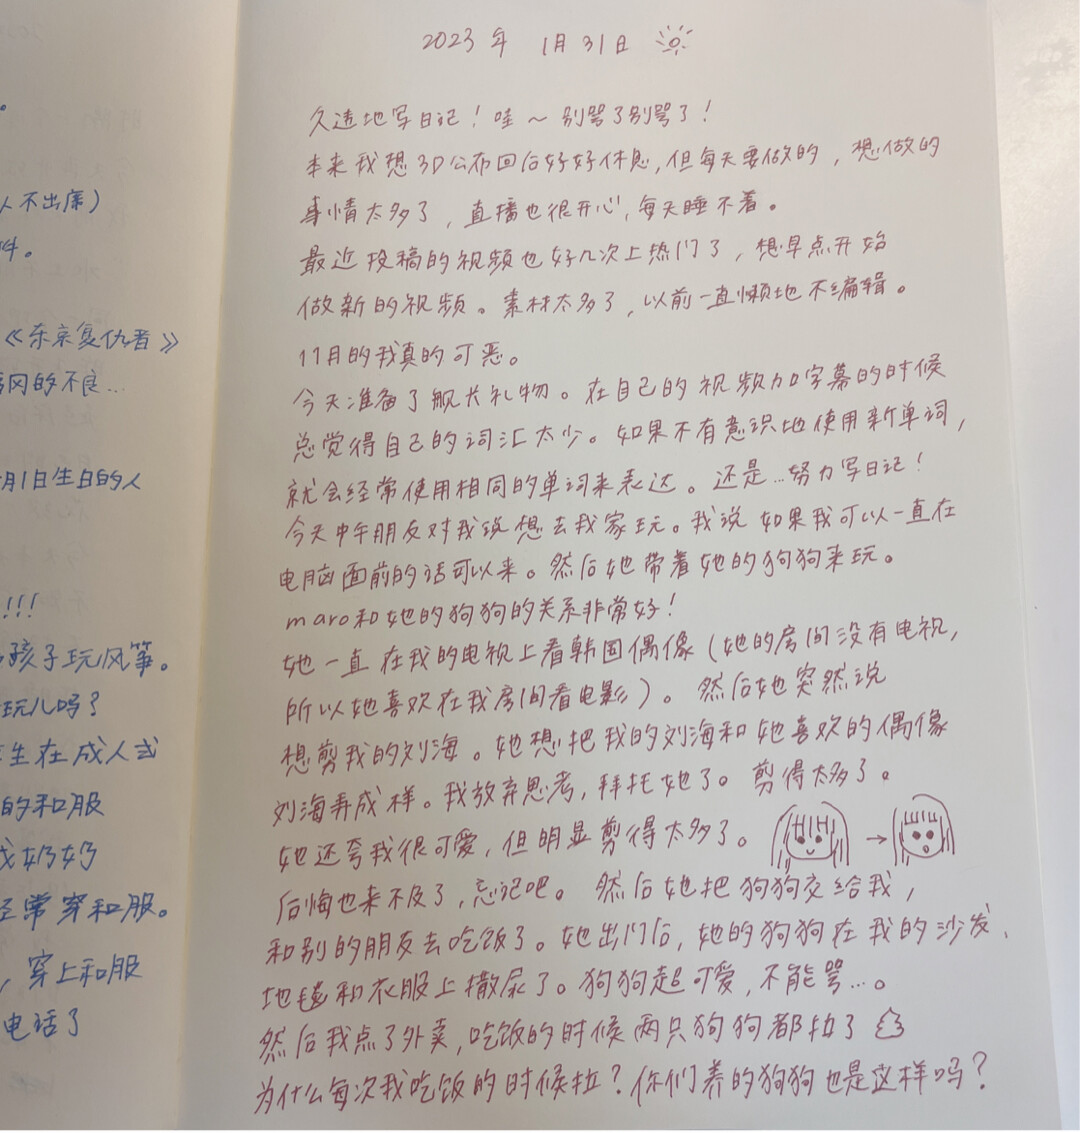 。
人不出库）
件。
《东京复仇者》
冈的不良…
月1日生日的人
!!!
孩子玩风筝。
玩儿吗？
生在成人式
的和服
成奶奶
经常穿和服。
，穿上和服
电话了
2023年 1月31日
久违地写日记！哇～别骂了别骂了！
本来我想3D公布回后好好休息，但每天要做的，想做的
事情太多了，直播也很开心，每天睡不着。
最近投稿的视频也好几次上热门了，想早点开始
做新的视频。素材太多了，以前一直懒地不编辑。
11月的我真的可恶。
今天准备了舰长礼物。在自己的视频加字幕的时候
总觉得自己的词汇太少。如果不有意识地使用新单词，
就会经常使用相同的单词来表达。还是…努力写日记！
今天中午朋友对我说想去我家玩。我说如果我可以一直在
电脑面前的话可以来。然后她带着她的狗狗来玩。
maro和她的狗狗的关系非常好！
她一直在我的电视上看韩国偶像（她的房间没有电视，
所以她喜欢在我房间看电影）。然后她突然说
想剪我的刘海。她想把我的刘海和她喜欢的偶像
刘海弄成样。我放弃思考，拜托她了。剪得太多了。
她还夸我很可爱，但明显剪得太多了。→
后悔也来不及了，忘记吧。然后她把狗狗交给我，
和别的朋友去吃饭了。她出门后，她的狗狗在我的沙发、
地毯和衣服上撒尿了。狗狗超可爱，不能骂…。
然后我点了外卖，吃饭的时候两只狗狗都拉了
为什么每次我吃饭的时候拉？你们养的狗狗也是这样吗？